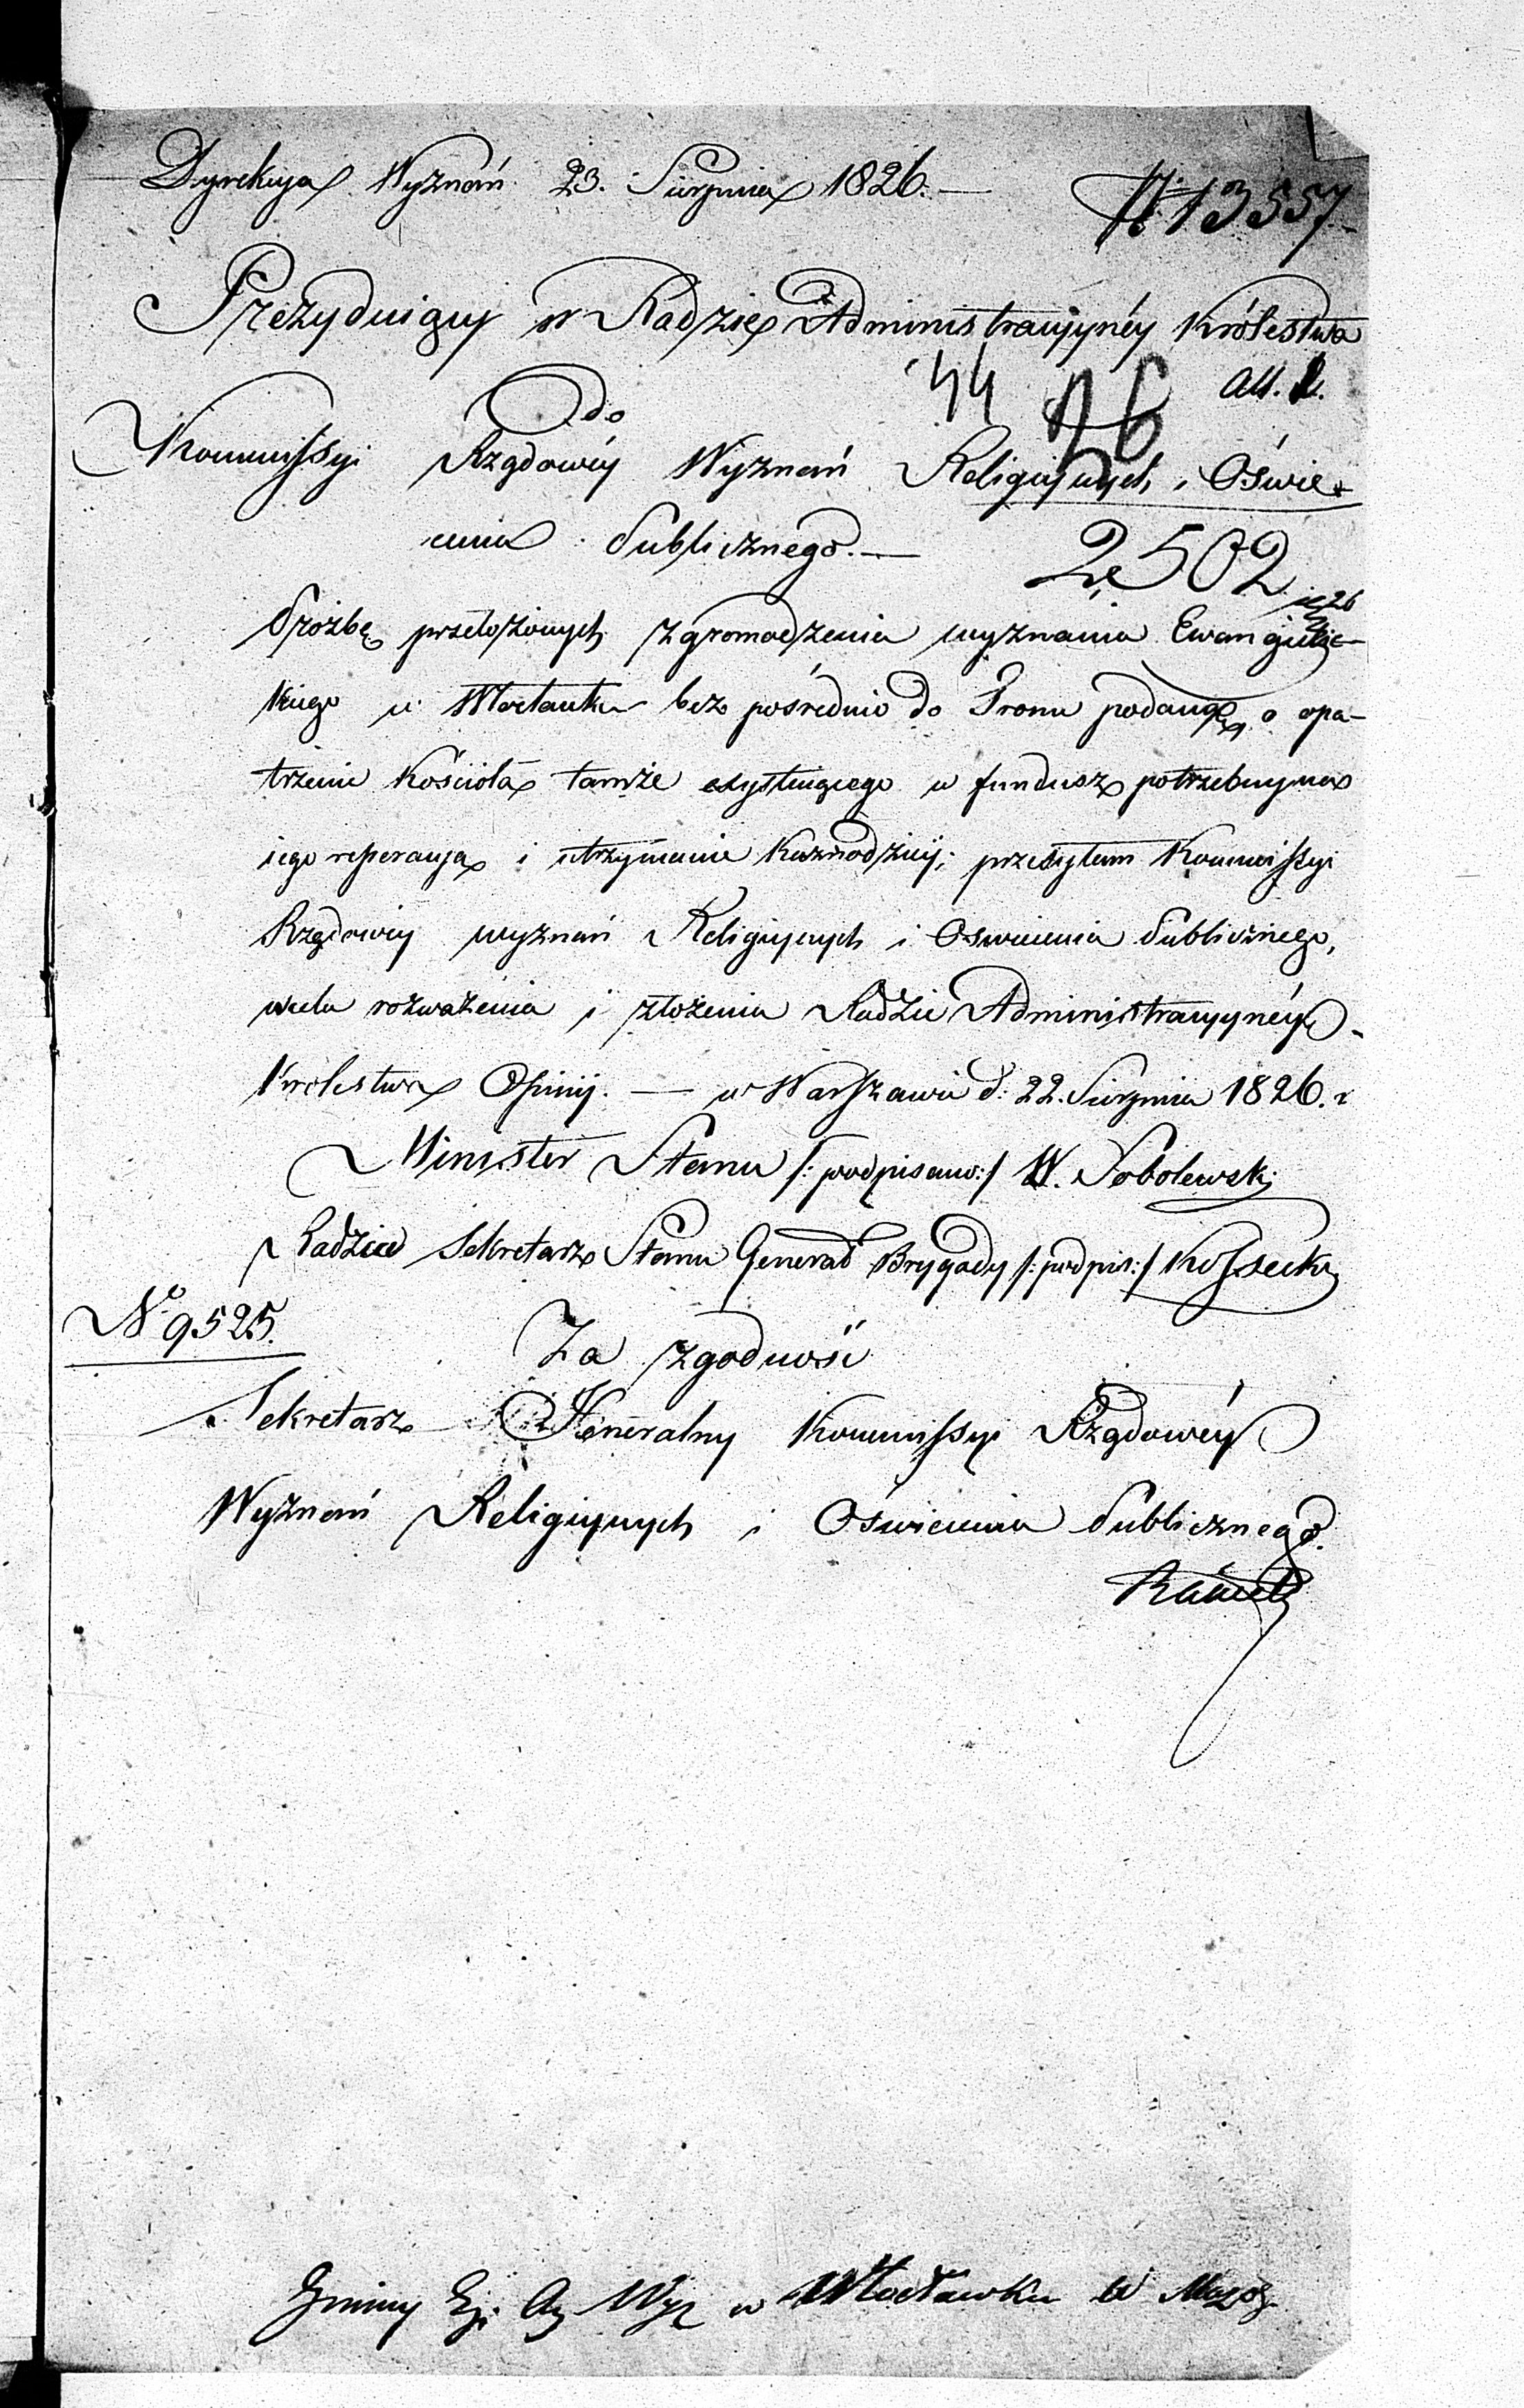 Dyrekcya Wyznań 23. Sierpnia 1826. —
N 13557.
Prezyduiący w Radzie Administracyinéy Królestwa
44 all. 1.
do
Kommissyi Rządowéy Wyznań Religiynych i Oświe-
cenia Publicznego. —
2502
Prożbę przełożonych zgromadzenia wyznania Ewangielic-
kiego w Włocławku bezpośrednio do Tronu podaną, o opa-
trzenie Kościoła tamże exystuiącego w fundusz potrzebny na
iego reperacyą i utrzymanie Kaznodziei; przesyłam Kommissyi
Rządowéy wyznań Religiynych i Oswiecenia Publicznego,
w celu rozważenia i złożenia Radzie Administracyynéy
Krolestwa Opinij. — w Warszawie d: 22. Sierpnia 1826. r
Minister Stanu /: podpisano:/ W. Sobolewski
Radzca Sekretarz Stanu Generał Brygady /: podpis:/ Kossecki
No 9525.
Za zgodność
Sekretarz Generalny Kommissyi Rządowéy
Wyznań Religiynych i Oświecenia Publicznego.
Gminy Ew. Aug Wyz w Włocławku W Mazow.